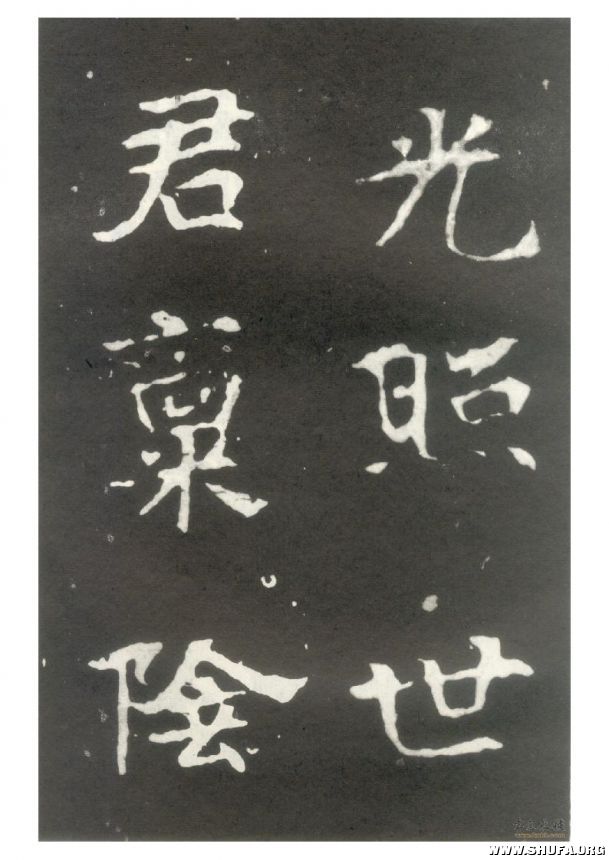 光照世
君稟陰
WWW.SHUFA.ORG